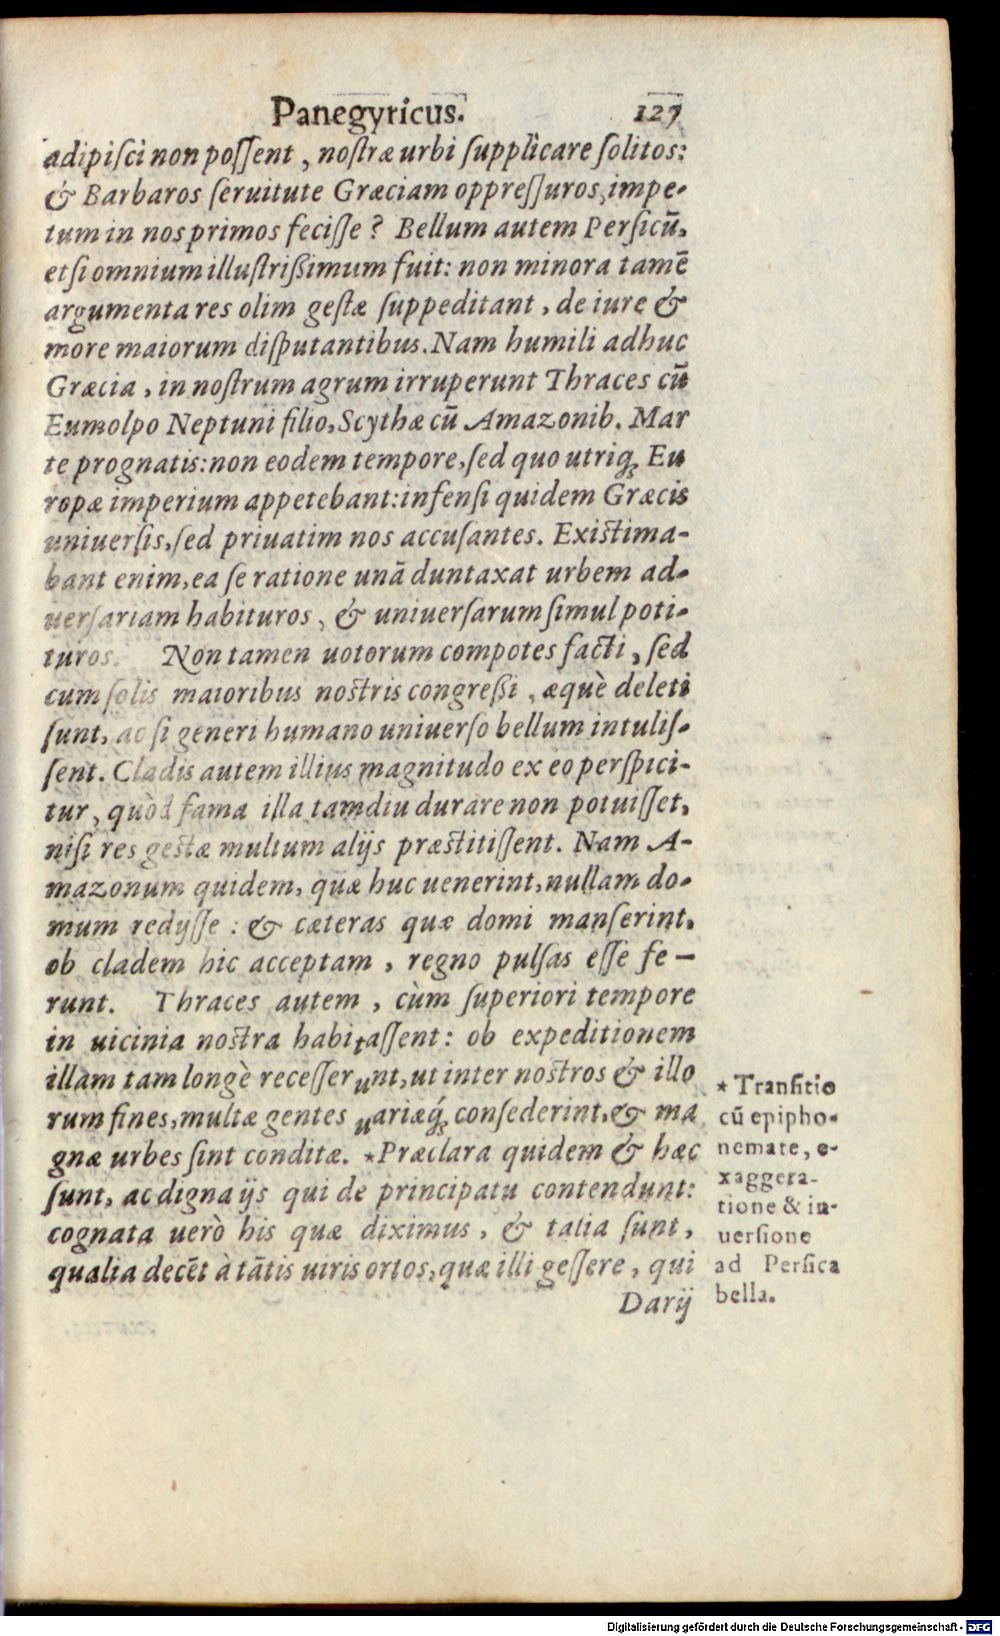 Panegyricus. 127
adipiſci non poſſent, noſtræ urbi ſupplicare ſolitos:
& Barbaros ſeruitute Græciam oppreſſuros, impe-
tum in nos primos feciſſe? Bellum autem Perſicū,
etſi omnium illuſtrißimum fuit: non minora tamē
argumenta res olim geſtæ ſuppeditant, de iure &
more maiorum diſputantibus. Nam humili adhuc
Græcia, in noſtrum agrum irruperunt Thraces cū
Eumolpo Neptuni filio, Scythæ cū Amazonib. Mar
te prognatis: non eodem tempore, ſed quo utriq; Eu
ropæ imperium appetebant: infenſi quidem Græcis
uniuerſis, ſed priuatim nos accuſantes. Existima-
bant enim, ea ſe ratione unā duntaxat urbem ad-
uerſariam habituros, & uniuerſarum ſimul poti-
turos. Non tamen uotorum compotes facti, ſed
cum ſolis maioribus nostris congreßi, æquè deleti
ſunt, ac ſi generi humano uniuerſo bellum intuliſ-
ſent. Cladis autem illius magnitudo ex eo perſpici-
tur, quòd fama illa tamdiu durare non potuiſſet,
niſi res gestæ multum alijs præstitiſſent. Nam A-
mazonum quidem, quæ huc uenerint, nullam do-
mum redijſſe: & cæteras quæ domi manſerint,
ob cladem hic acceptam, regno pulſas eſſe fe-
runt. Thraces autem, cùm ſuperiori tempore
in uicinia nostra habitaſſent: ob expeditionem
illam tam longè receſſerunt, ut inter nostros & illo
rum fines, multæ gentes uariæq́; conſederint, & ma
gnæ urbes ſint conditæ. *Præclara quidem & hæc
ſunt, ac digna ijs qui de principatu contendunt:
cognata uerò his quæ diximus, & talia ſunt,
qualia decēt à tātis uiris ortos, quæ illi geſſere, qui
Darij
* Tranſitio
cū epipho-
nemate, e-
xaggera-
tione & in-
uerſione
ad Perſica
bella.
Digitalisierung gefördert durch die Deutsche Forschungsgemeinschaft - DFG